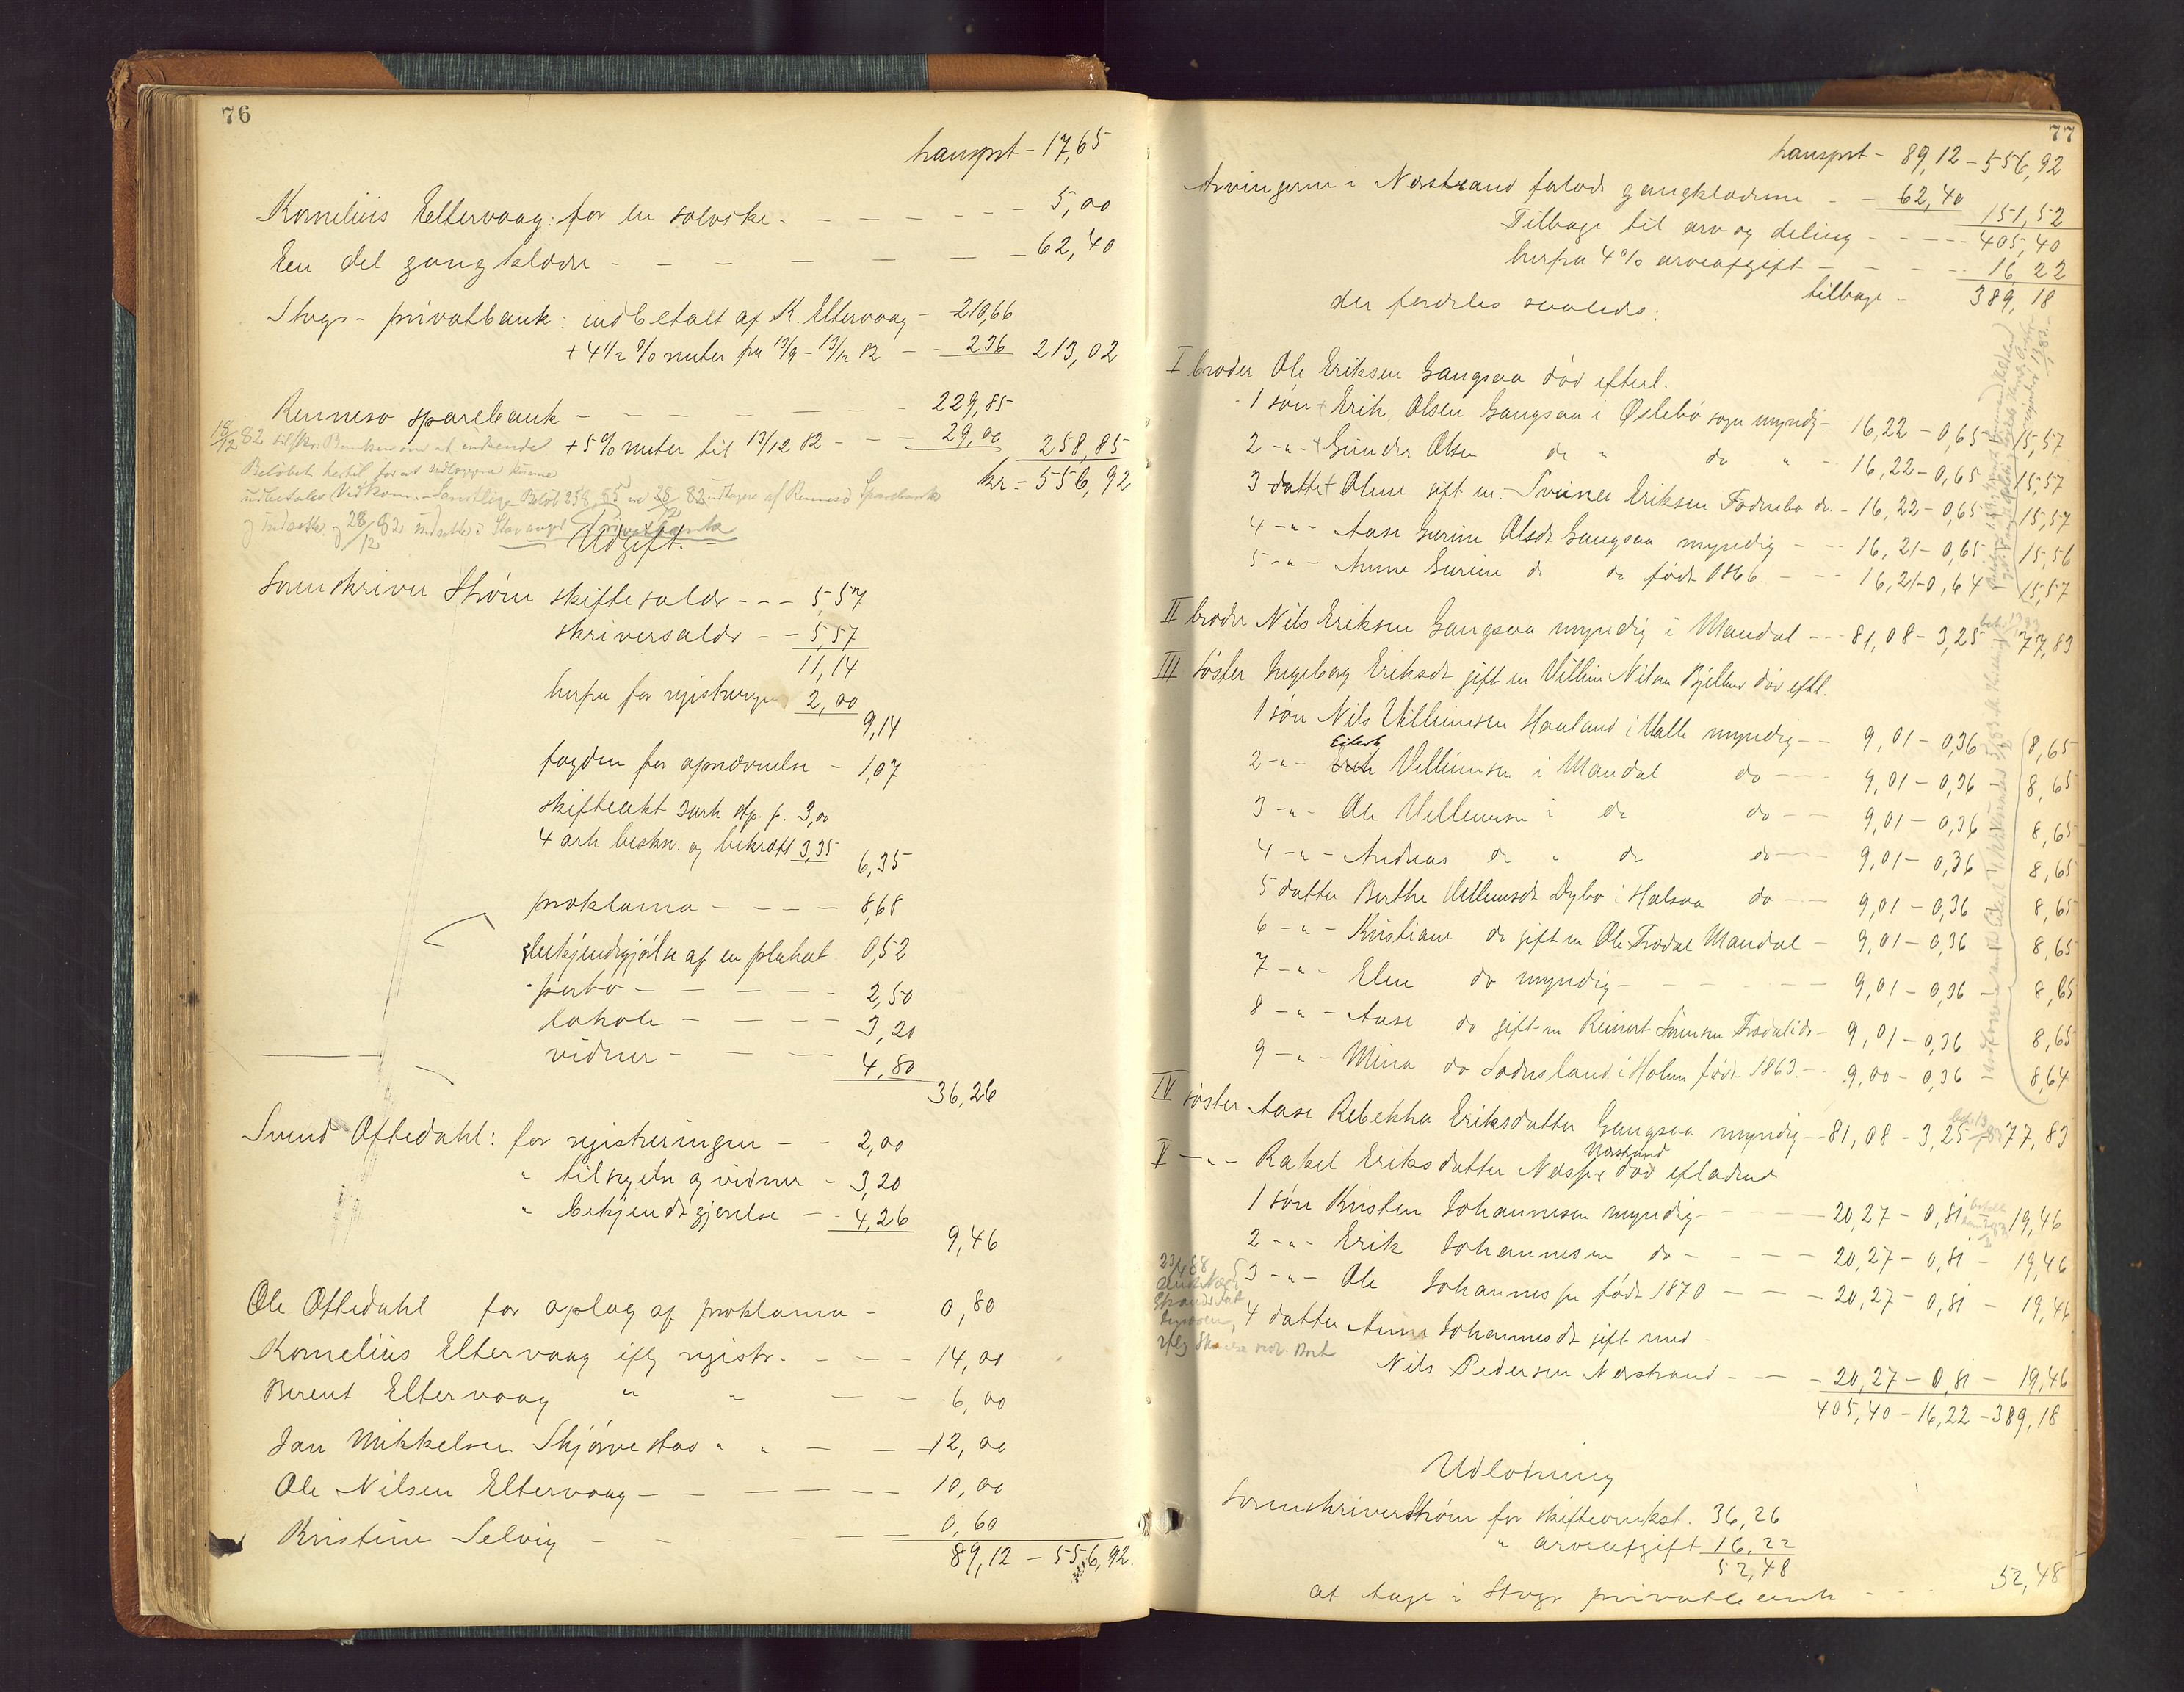 76
transprt - 17,65
Kornelius Eltervaag: for en sølvske - 5,00
Een del gangklæder - 62,40
Stvgr - privatbank: indbetalt af K. Eltervaag - 210,66
+ 4 1/2 % renter fra 13/9 - 13/12 82 - 236 213,02
Rennesø sparebank - 229,85
+ 5 % renter til 13/12 82 - 29,00 258,85
kr = 556,92
18/12 82 Banken om at indsende
Beløbet hertil for at udlægges kunne
indbetales Vedkom. - Samtlige Beløb 258,85 er 28/12 82 af Rennesø Sparebank
og indsatte 28/12 82 indsatte i Stavanger Privatbank
Udgift.
Sorenskriver Strøm skiftesalær - 5,57
skriversalær - 5,57
11,14
herfra for registeringen 2,00
9,14
fogden for opnævnelse - 1,07
skifteakt 3 ark stp. p. 3,00
4 ark beskr. og bekræft 3,35
6,35
proklama - 8,68
bekjendtgjørelse af en plakat 0,52
porto - 2,50
lokale - 3,20
vidner - 4,80
36,26
Svend Oftedahl: for registreringen - 2,00
" tilsyeln og vidner - 3,20
" bekjendtgjørelse - 4,26
9,46
Ole Oftedahl for oplæg af proklama - 0,80
Kornelius Eltervaag iflg registr. - 14,00
Berent Eltervaag " " - 6,00
Jan Mikkelsen Skjørvestad " " - 12,00
Ole Nilsen Eltervaag - 10,00
Kristine Selvig - 0,60
89,12 - 556,92.
77
transprt - 89,12 - 556,92
Arvingerne i Nærstrand forlods gangklæderne - 62,40
151,52
Tilbage til arv og deling - 405,40
herfra 4% arveafgift - 16 22
tilbage - 389,18
der fordeles saaledes:
I broder Ole Eriksen Gangsaa død efterl.
1 søn + Erik Olsen Gangsaa i Øslebø sogn myndig - 16,22 - 0,65 - 15,57
2 -"- + Gunder Olsen do " do " - 16,22 - 0,65 15,57
3 datter + Oline gift m. Svinee Eriksen Fodnebø do. - 16,22 - 0,65 15,57
4 -"- Aase Gurine Olsdt Gangsaa myndig - 16,21 - 0,65 15,56
5 -"- Anne Gurine do do født 1866. - 16,21 - 0,64 15,57
II broder Nils Eriksen Gangsaa myndig i Mandal - 81,08 - 3,25 - 77,83
III søster Ingeborg Eriksdt gift m Villum Nilsen Bjelland død eftl.
1 søn Nils Villumsen Haaland i Halle myndig - 9,01 - 0,36 - 8,65
Eilert
2 -"- Erik Villumsen i Mandal do - 9,01 - 0,36 - 8,65
3 -"- Ole Villumsen i do do - 9,01 - 0,36 8,65
4 -"- Andreas do " do do - 9,01 - 0,36 8,65
5 datter Berthe Villumsdt Dybo i Halsaa do - 9,01 - 0,36 8,65
6 -"- Kristiane do gift m Ole Trædal Mandal - 9,01 - 0,36 8,65
7 -"- Elen do myndig - 9,01 - 0,36 - 8,65
8 -"- Aase do gift m Reinert Sørensen Trædal do - 9,01 - 0,36 8,65
9 -"- Mina do Lodnsland i Holum født 1863. - 9,00 - 0,36 - 8,64
IV søster Aase Rebekka Eriksdatter Gangsaa myndig - 81,08 - 3,25 77,83
Nærstrand
V -"- Rakel Eriksdatter død efladend
1 søn Kristen Johannesen myndig - 20,27 - 0,81 - 19,46
2 -"- Erik Johannesen do - 20,27 - 0,81 - 19,46
3 -"- Ole Johannesen født 1870 - 20,27 - 0,81 - 19,46
4 datter Anna Johannesdt gift med -
Nils Pedersen Nærstrand - 20,27 - 0,81 - 19,46
405,40 - 16,22 - 389,18
Udlodning
Sorenskriver Strøm for skifteomkst. 36,26
" arveafgift 16,22
52,48
at tage i Stvgr privatbank - 52,48